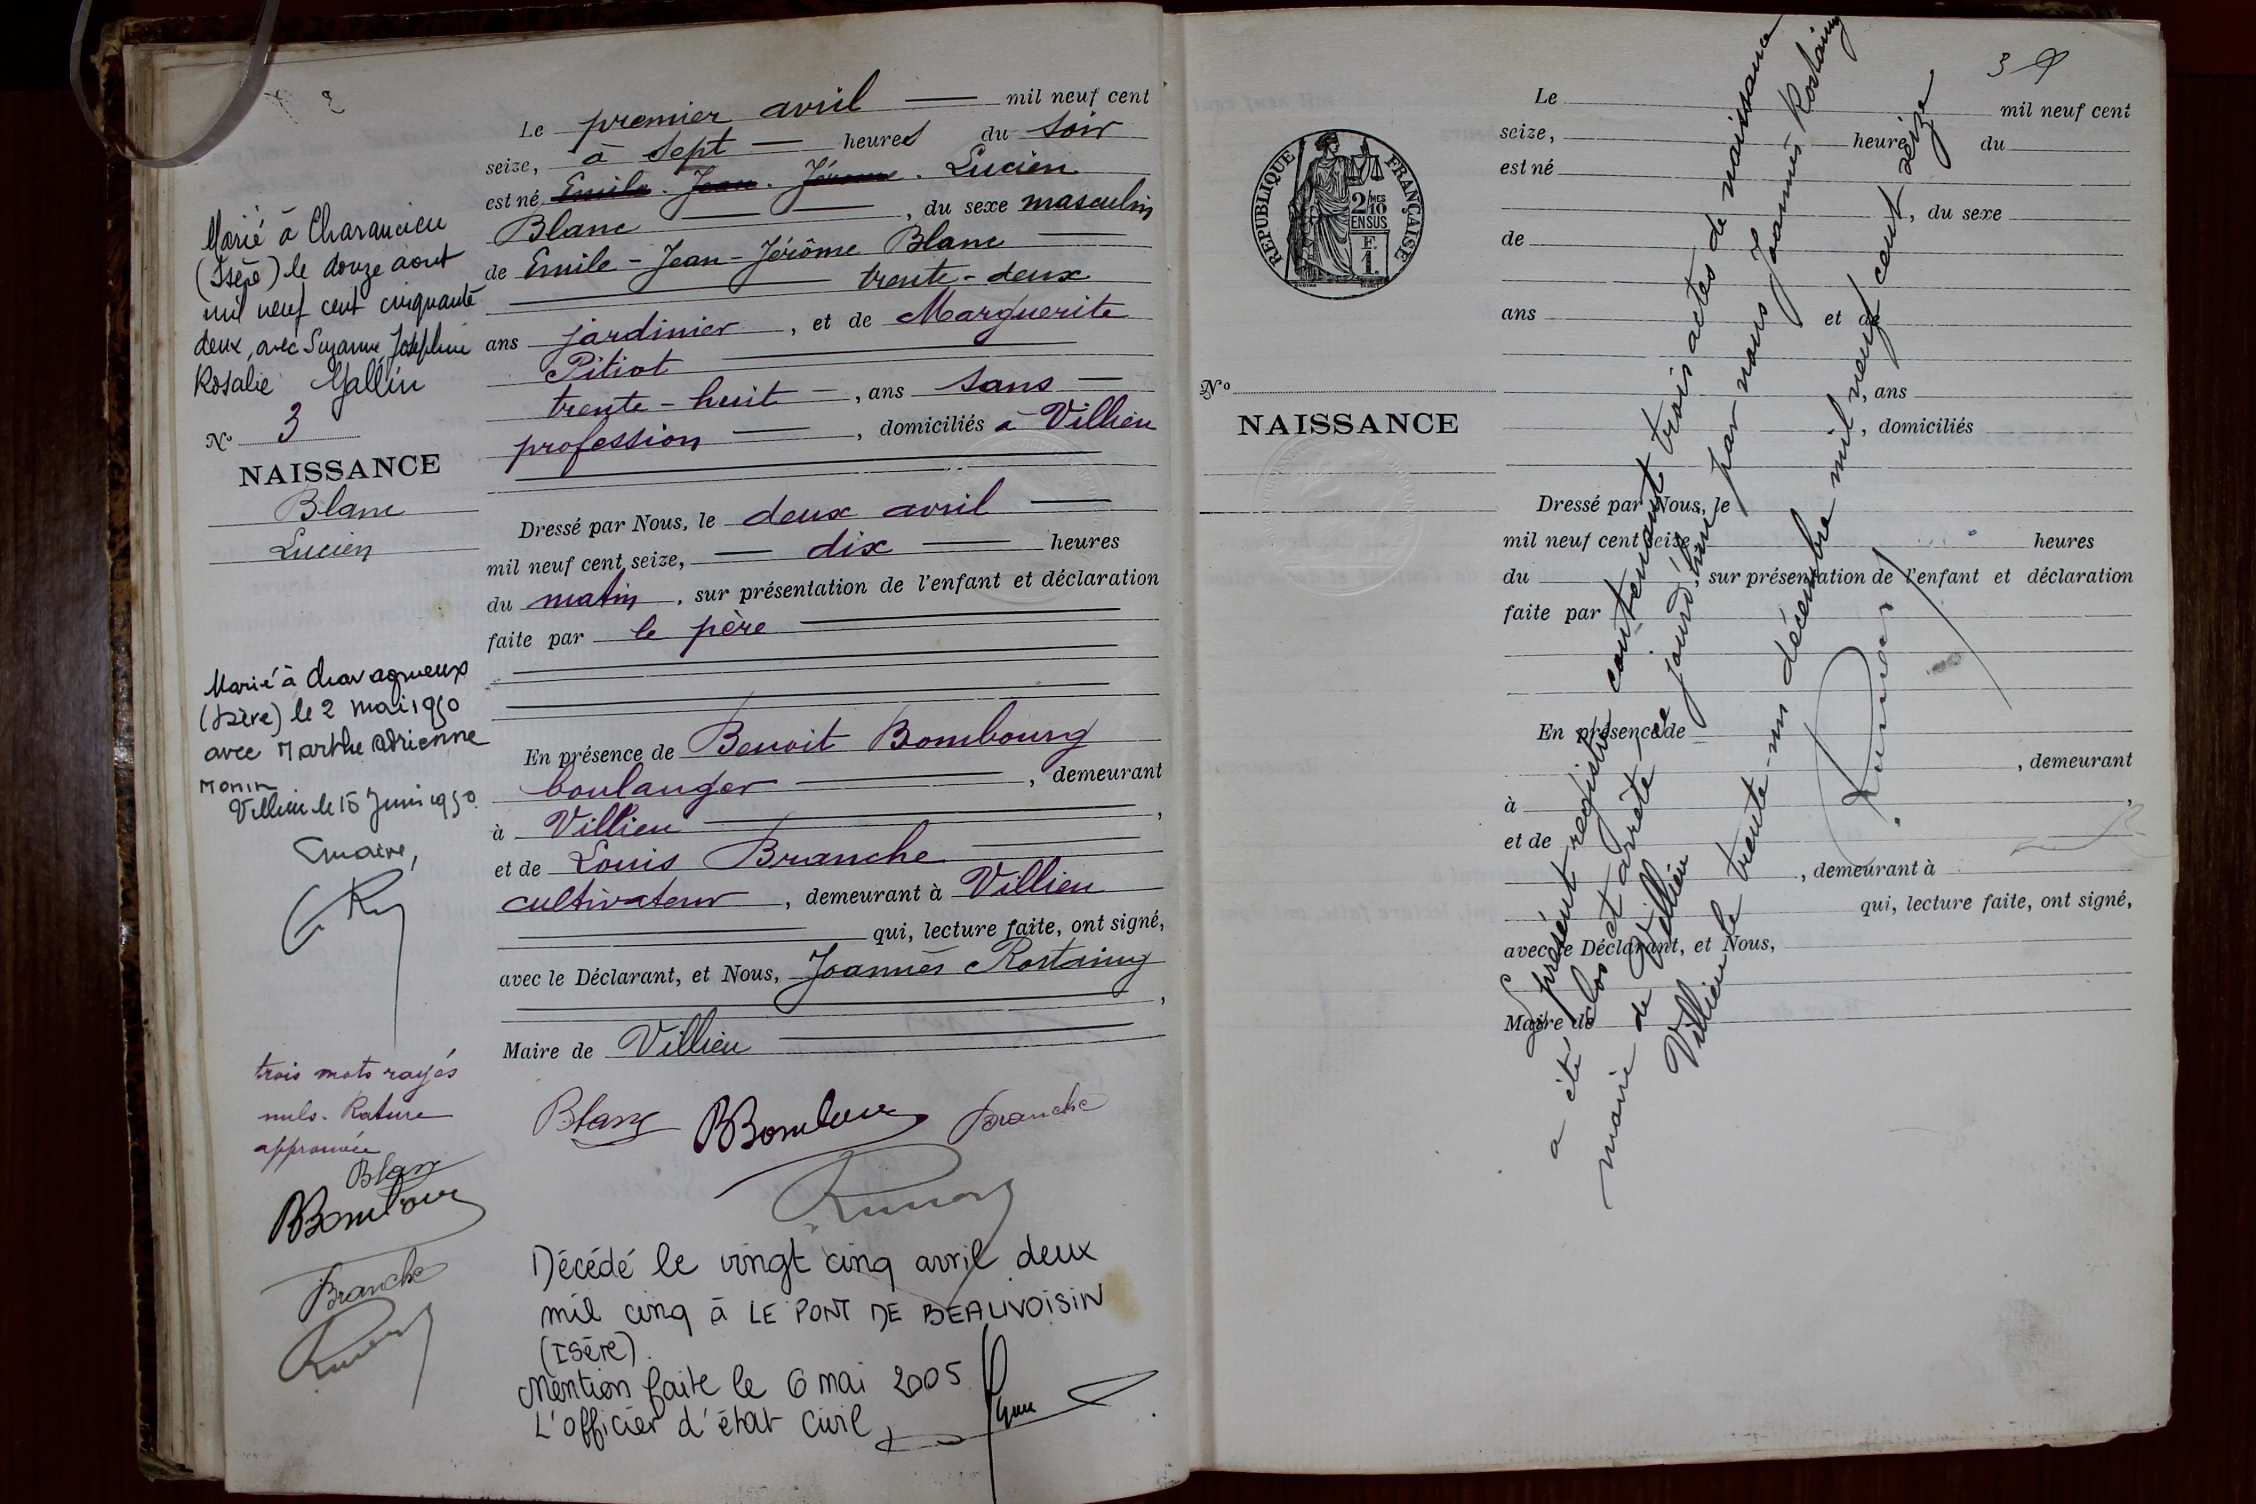 2
Le premier avril mil neuf cent
seize, à sept heures du soir
est né Emile. Jean. Jérome. Lucien
Blanc , du sexe masculin
de Emile - Jean - Jérôme Blanc
trente - deux
ans jardinier , et de Marguerite
Pitiot
trente - huit , ans sans
profession , domiciliés à Villieu
Dressé par Nous, le deux avril
mil neuf cent seize, dix heures
du matin , sur présentation de l'enfant et déclaration
faite par le père
En présence de Benoit Bombourg
boulanger , demeurant
à Villieu ,
et de Louis Branche
cultivateur , demeurant à Villieu
qui, lecture faite, ont signé,
avec le Déclarant, et Nous, Joannès Rostaing
,
Maire de Villieu
Blanc BBombour Branche
Décédé le vingt cinq avril deux
mil cinq à LE PONT DE BEAUVOISIN
(Isère).
Mention faite le 6 mai 2005
L'officier d'état civil,
Marié à Charancieu
(Isère) le douze août
mil neuf cent cinquante
deux, avec Suzanne Joséphine
Rosalie Gallin
No 3
NAISSANCE
Blanc
Lucien
Marié à Chavagneux
(Isère) le 2 mai 1950
avec Marthe Adrienne
Monin
Villieu le 15 Juin 1950.
maire,
trois mots rayés
nuls. Rature
approuvée
Blanc
BBombour
Branche
3
REPUBLIQUE FRANÇAISE
2/10MES
EN SUS
F.
1.
No
NAISSANCE
Le mil neuf cent
seize, heure du
est né
, du sexe
de
ans et de
, ans
, domiciliés
Dressé par Nous, le
mil neuf cent seize, heures
du , sur présentation de l'enfant et déclaration
faite par
En présence de
, demeurant
à ,
et de
, demeurant à
qui, lecture faite, ont signé,
avec le Déclarant, et Nous,
Maire de
Le présent registre contenant trois actes de naissance
a été clos et arrêté ce jourd'hui par nous Joannès Rostaing
maire de Villieu
Villieu le trente-un décembre mil neuf cent seize